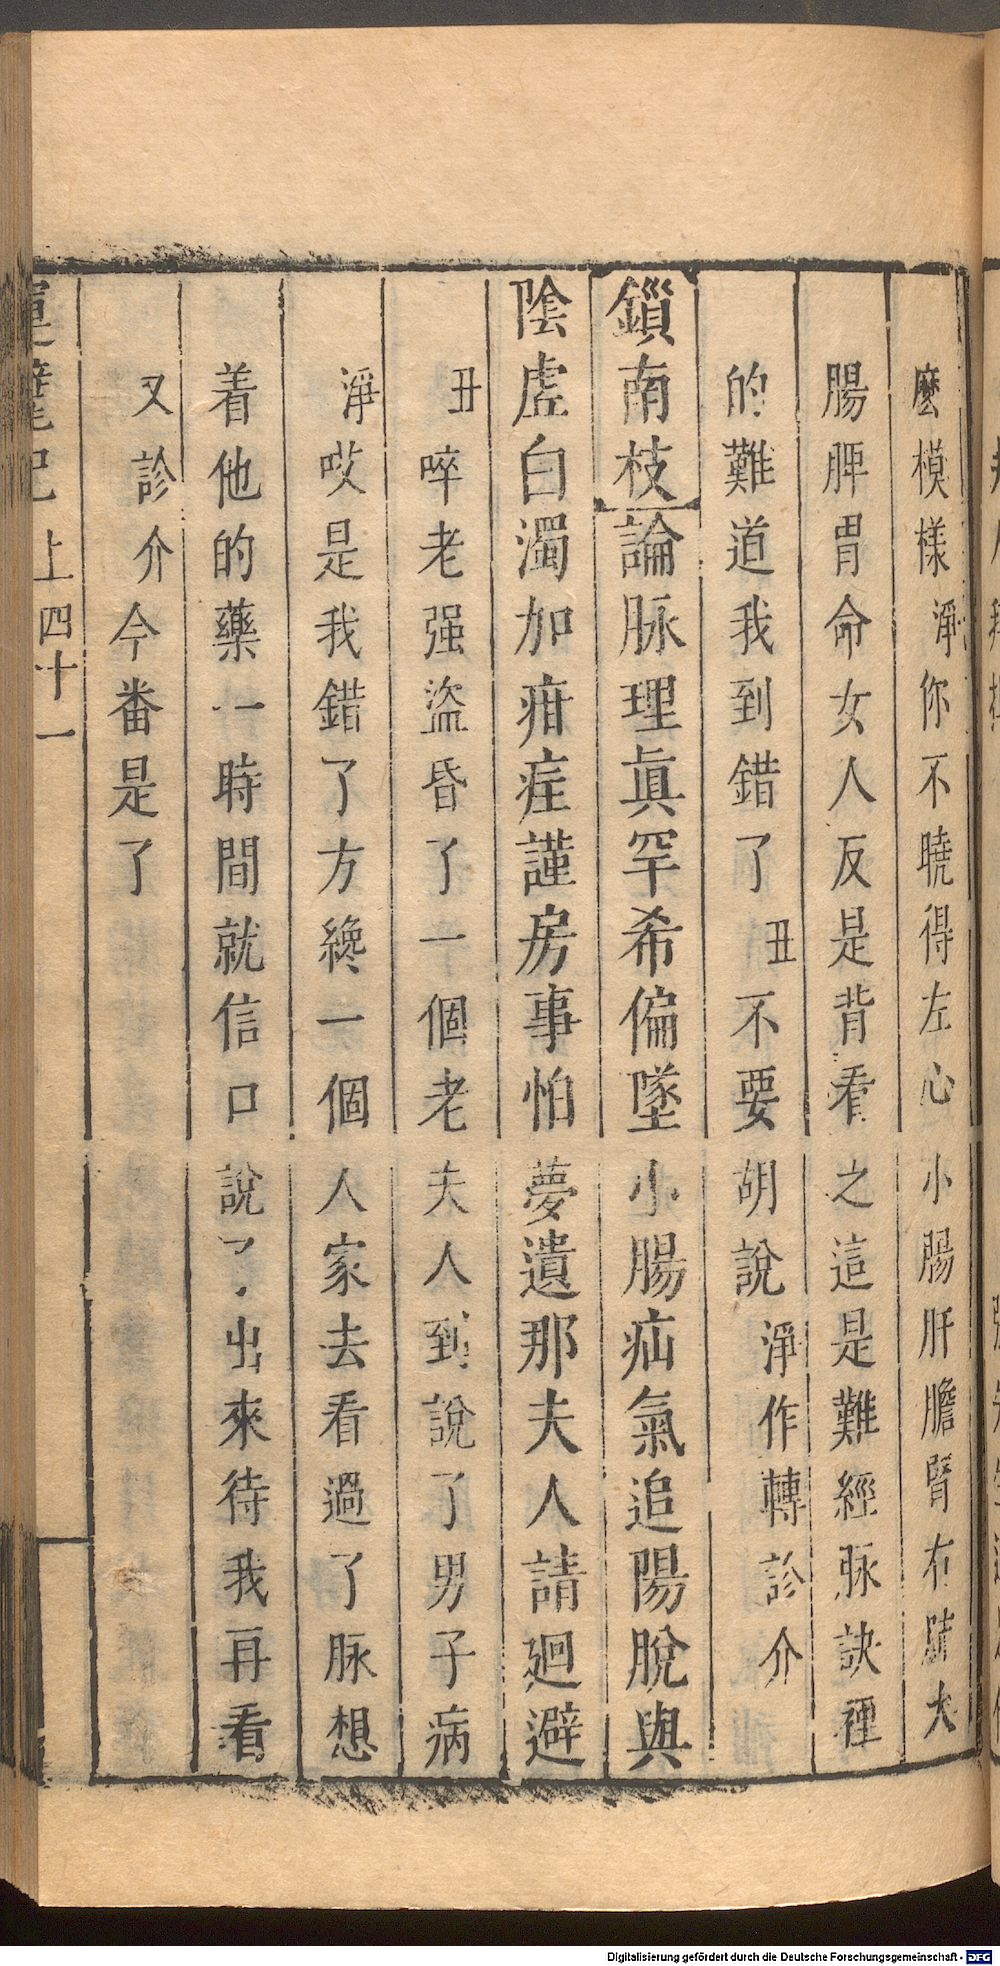 麽模樣淨你不曉得左心小腸肝膽腎右肺大
腸脾胃命女人反是背看之這是難經脉訣裡
的難道我到錯了丑不要胡說淨作轉診介
鎻南枝論脉理眞罕希偏墜小腸疝氣追陽脫與
陰虛白濁加疳疰謹房事怕夢遺那夫人請廻避
丑啐老强盜昏了一個老夫人到說了男子病
淨哎是我錯了方纔一個人家去看過了脉想
着他的藥一時間就信口說了出來待我再看
又診介今番是了
上四十一
Digitalisierung gefördert durch die Deutsche Forschungsgemeinschaft - DFG